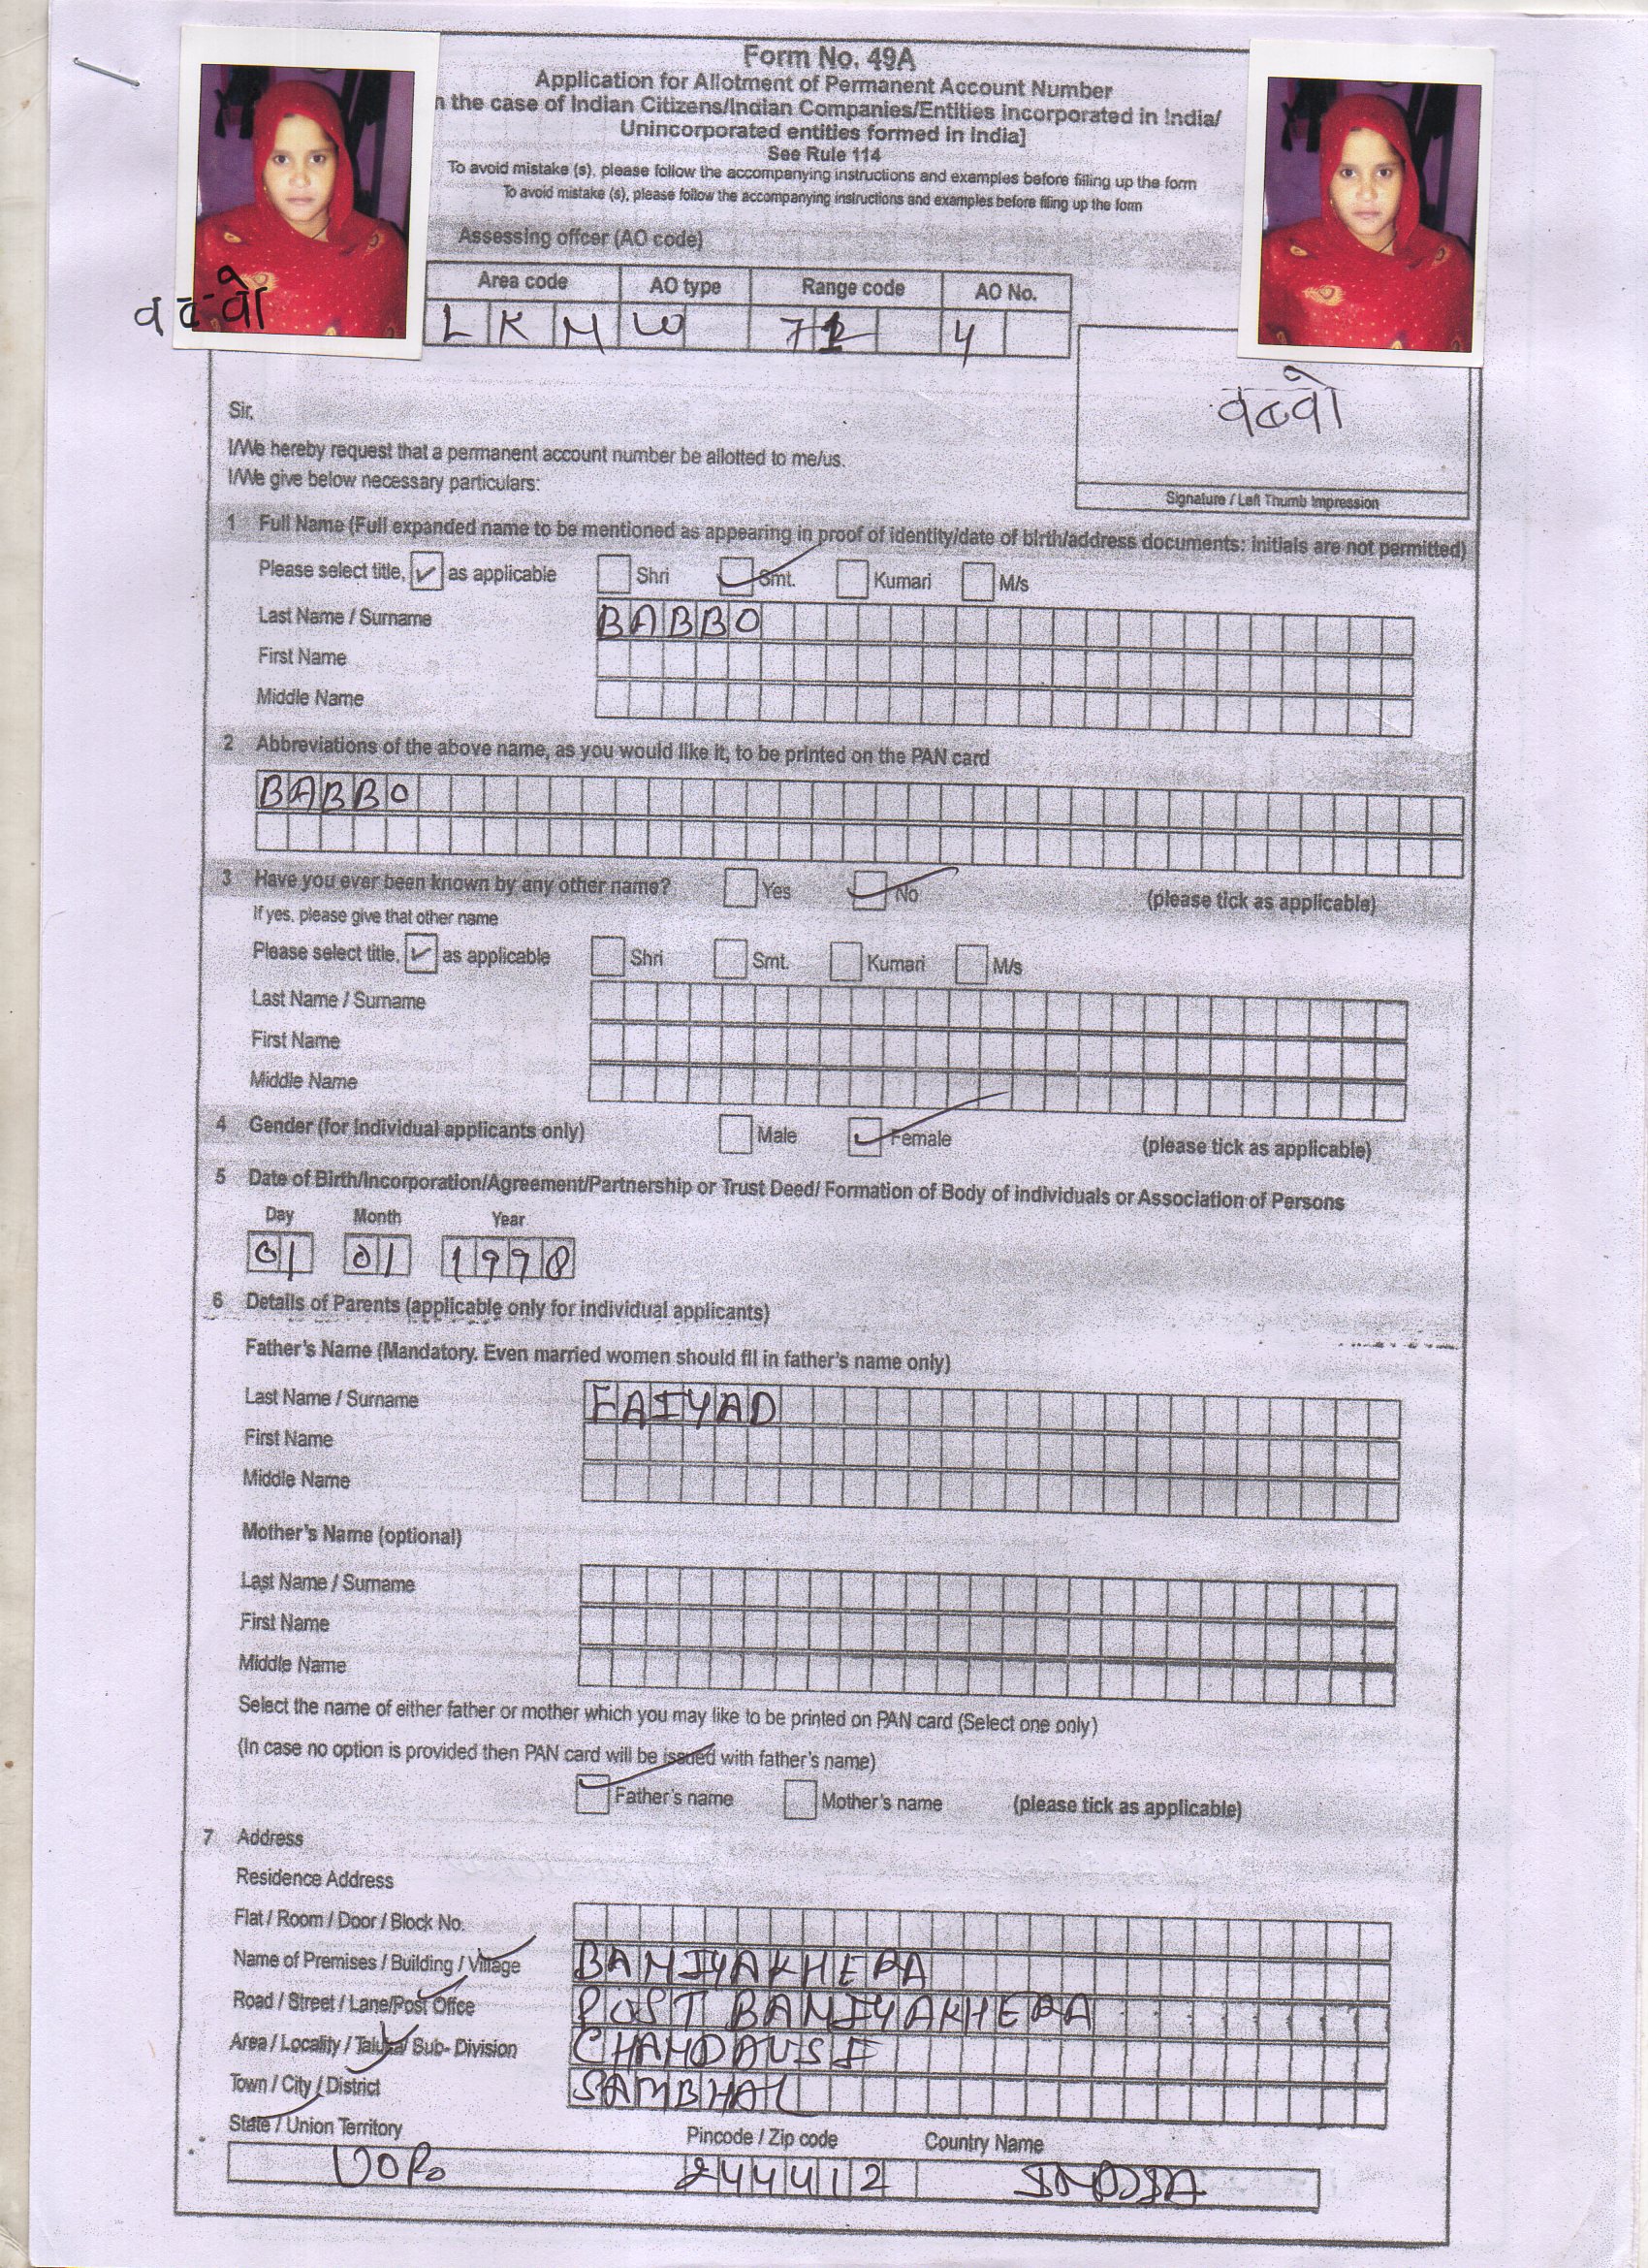 Form No. 49A
Application for Allotment of Permanent Account Number
n the case of Indian Citizens/Indian Companies/Entities Incorporated in India/
Unincorporated entities formed in India]
See Rule 114
To avoid mistake (s), please follow the accompanying instructions and examples before filling up the form
To avoid mistake (s), please follow the accompanying instructions and examples before filing up the form
Assessing offcer (AO code)
Area code AO type Range code AO No.
L K N W 4
बब्बो
बब्बो
Signature / Left Thumb Impression
Sir,
I/We hereby request that a permanent account number be allotted to me/us.
I/We give below necessary particulars:
1 Full Name (Full expanded name to be mentioned as appearing in proof of identity/date of birth/address documents: initials are not permitted)
Please select title, ✓ as applicable Shri Smt. Kumari M/s
Last Name / Surname BABBO
First Name
Middle Name
2 Abbreviations of the above name, as you would like it, to be printed on the PAN card
BABBO
3 Have you ever been known by any other name? Yes No (please tick as applicable)
If yes, please give that other name
Please select title, ✓ as applicable Shri Smt. Kumari M/s
Last Name / Surname
First Name
Middle Name
4 Gender (for Individual applicants only) Male Female (please tick as applicable)
5 Date of Birth/Incorporation/Agreement/Partnership or Trust Deed/ Formation of Body of individuals or Association of Persons
Day Month Year
01 01 1998
6 Details of Parents (applicable only for individual applicants)
Father's Name (Mandatory. Even married women should fil in father's name only)
Last Name / Surname FAIYAD
First Name
Middle Name
Mother's Name (optional)
Last Name / Surname
First Name
Middle Name
Select the name of either father or mother which you may like to be printed on PAN card (Select one only)
(In case no option is provided then PAN card will be issued with father's name)
Father's name Mother's name (please tick as applicable)
7 Address
Residence Address
Flat / Room / Door / Block No.
Name of Premises / Building / Village BANIYAKHERA
Road / Street / Lane/Post Office POST BANIYAKHERA
Area / Locality / Taluka/ Sub- Division CHANDAUSI
Town / City / District SAMBHAL
State / Union Territory Pincode / Zip code Country Name
U.P. 244412 INDIA